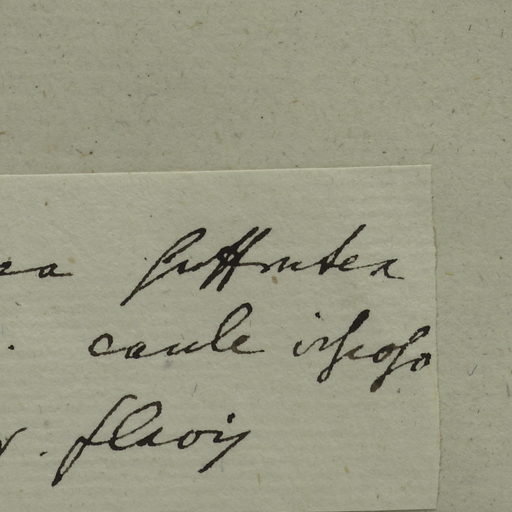 suffrutex
. caule viscoso
. flavis